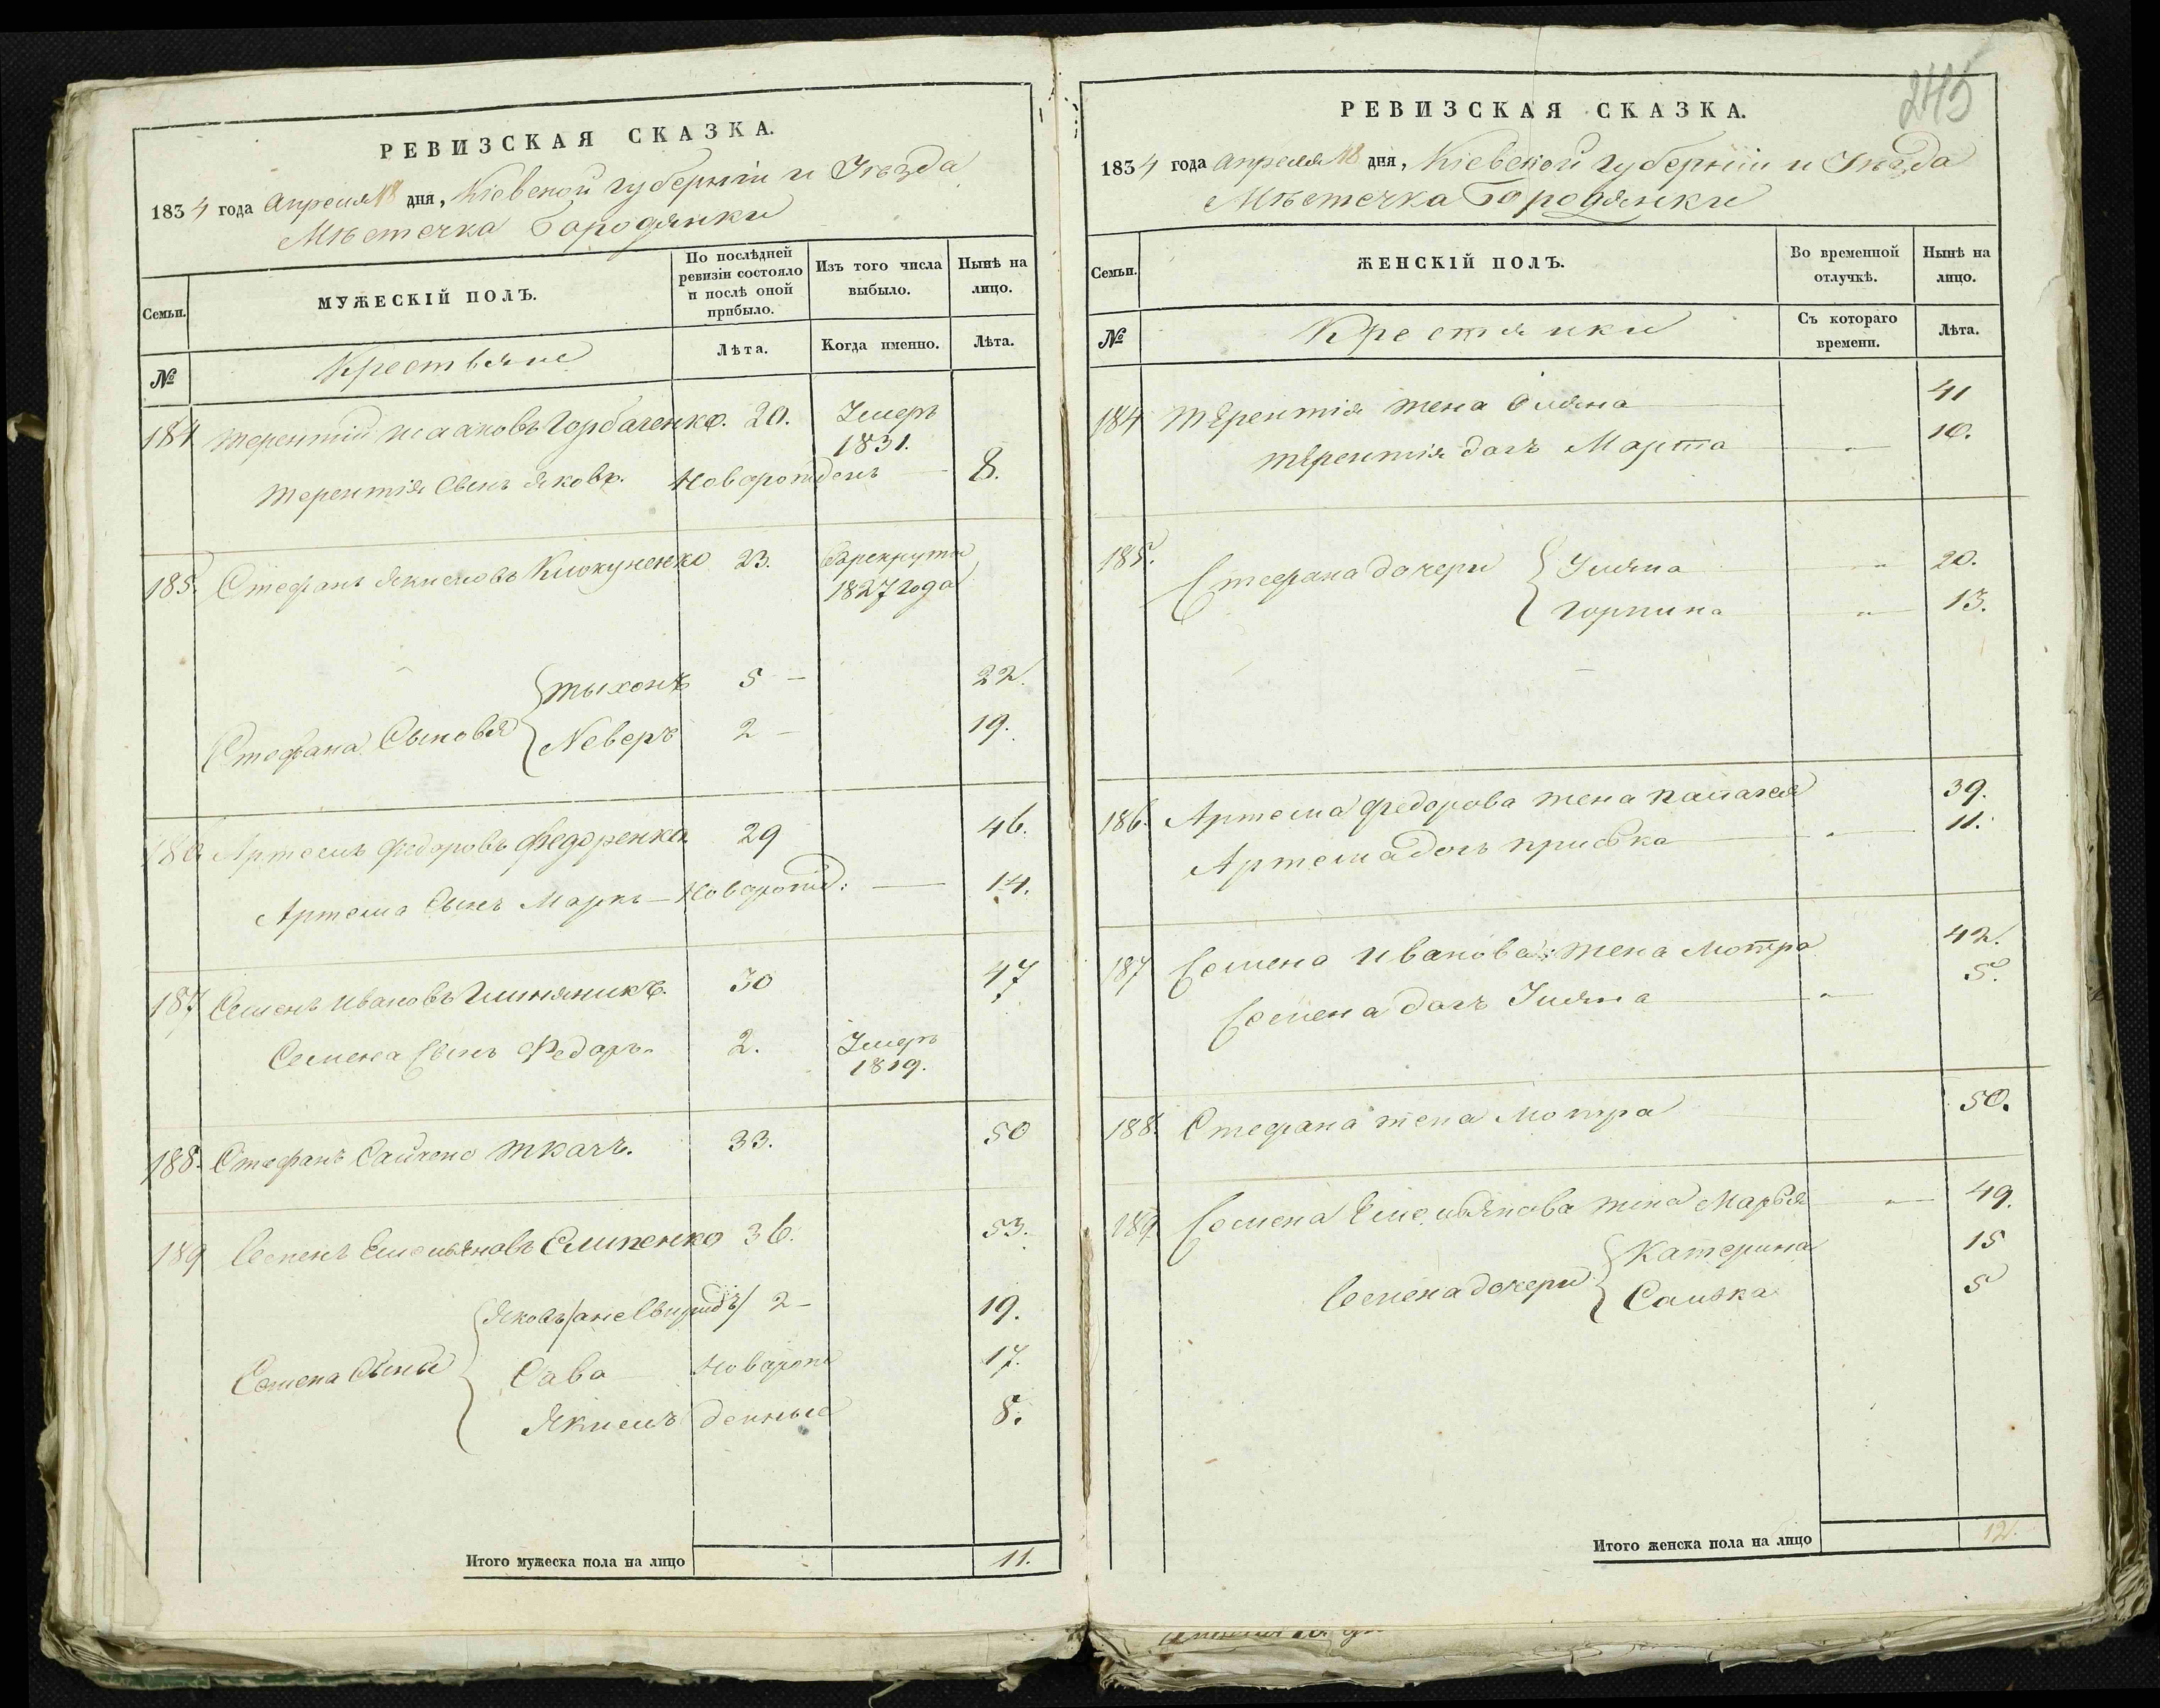 РЕВИЗСКАЯ СКАЗКА.
1834 года Апреля 18 дня, Кіевской губерніи и Уѣзда
Мѣстечка Бородянки
Семьи.
МУЖЕСКІЙ ПОЛЪ.
По послѣдней ревизіи состояло и послѣ оной прибыло.
Изъ того числа выбыло.
Нынѣ на лицо.
№
Крестьяне
Лѣта.
Когда именно.
Лѣта.
184 Терентій Исааковъ Горбаченко. 20. Умеръ 1831.
Терентія Сынъ Яковъ. Новорожденъ — 8.
185. Стефанъ Якимовъ Клокуненко 23. 1827 года
Стефана Сыновья { Тыхонъ 5 — 22.
Неверъ 2 — 19.
186 Артемъ Федоровъ Федоренко 29 46.
Артема Сынъ Марко — Новорожд: — 14.
187 Семенъ Ивановъ Глиняникъ. 30 47
Семена Сынъ Федоръ. 2. Умеръ 1819.
188. Стефанъ Ткачъ. 33. 50
189 Семенъ Емельяновъ Слипенко 36. 53.
Семена Сыны { Яковъ /а не Свиридъ/ 2 — 19.
Сава Новорож 17.
Якимъ денные 8.
Итого мужеска пола на лицо 11.
245
РЕВИЗСКАЯ СКАЗКА.
1834 года Апреля 18 дня, Кіевской губерніи и Уѣзда
Мѣстечка Бородянки
Семьи.
ЖЕНСКІЙ ПОЛЪ.
Во временной отлучкѣ.
Нынѣ на лицо.
№
Крестянки
Съ котораго времени.
Лѣта.
184 Терентія жена Уляна 41
Терентія дочь Марта — " — 10.
185. Стефана дочери { Уляна — " 20.
Горпина — " — 13.
186. Артема Федорова жена Палагея 39.
Артема дочь Приська — " — 11.
187 Семена Иванова: жена Мотра 42.
Семена дочь Уляна — " — 5.
188. Стефана жена Мотра 50.
189. Семена Емельянова жена Марья — " — 49.
Семена дочери { Катерина 15
5
Итого женска пола на лицо 12.